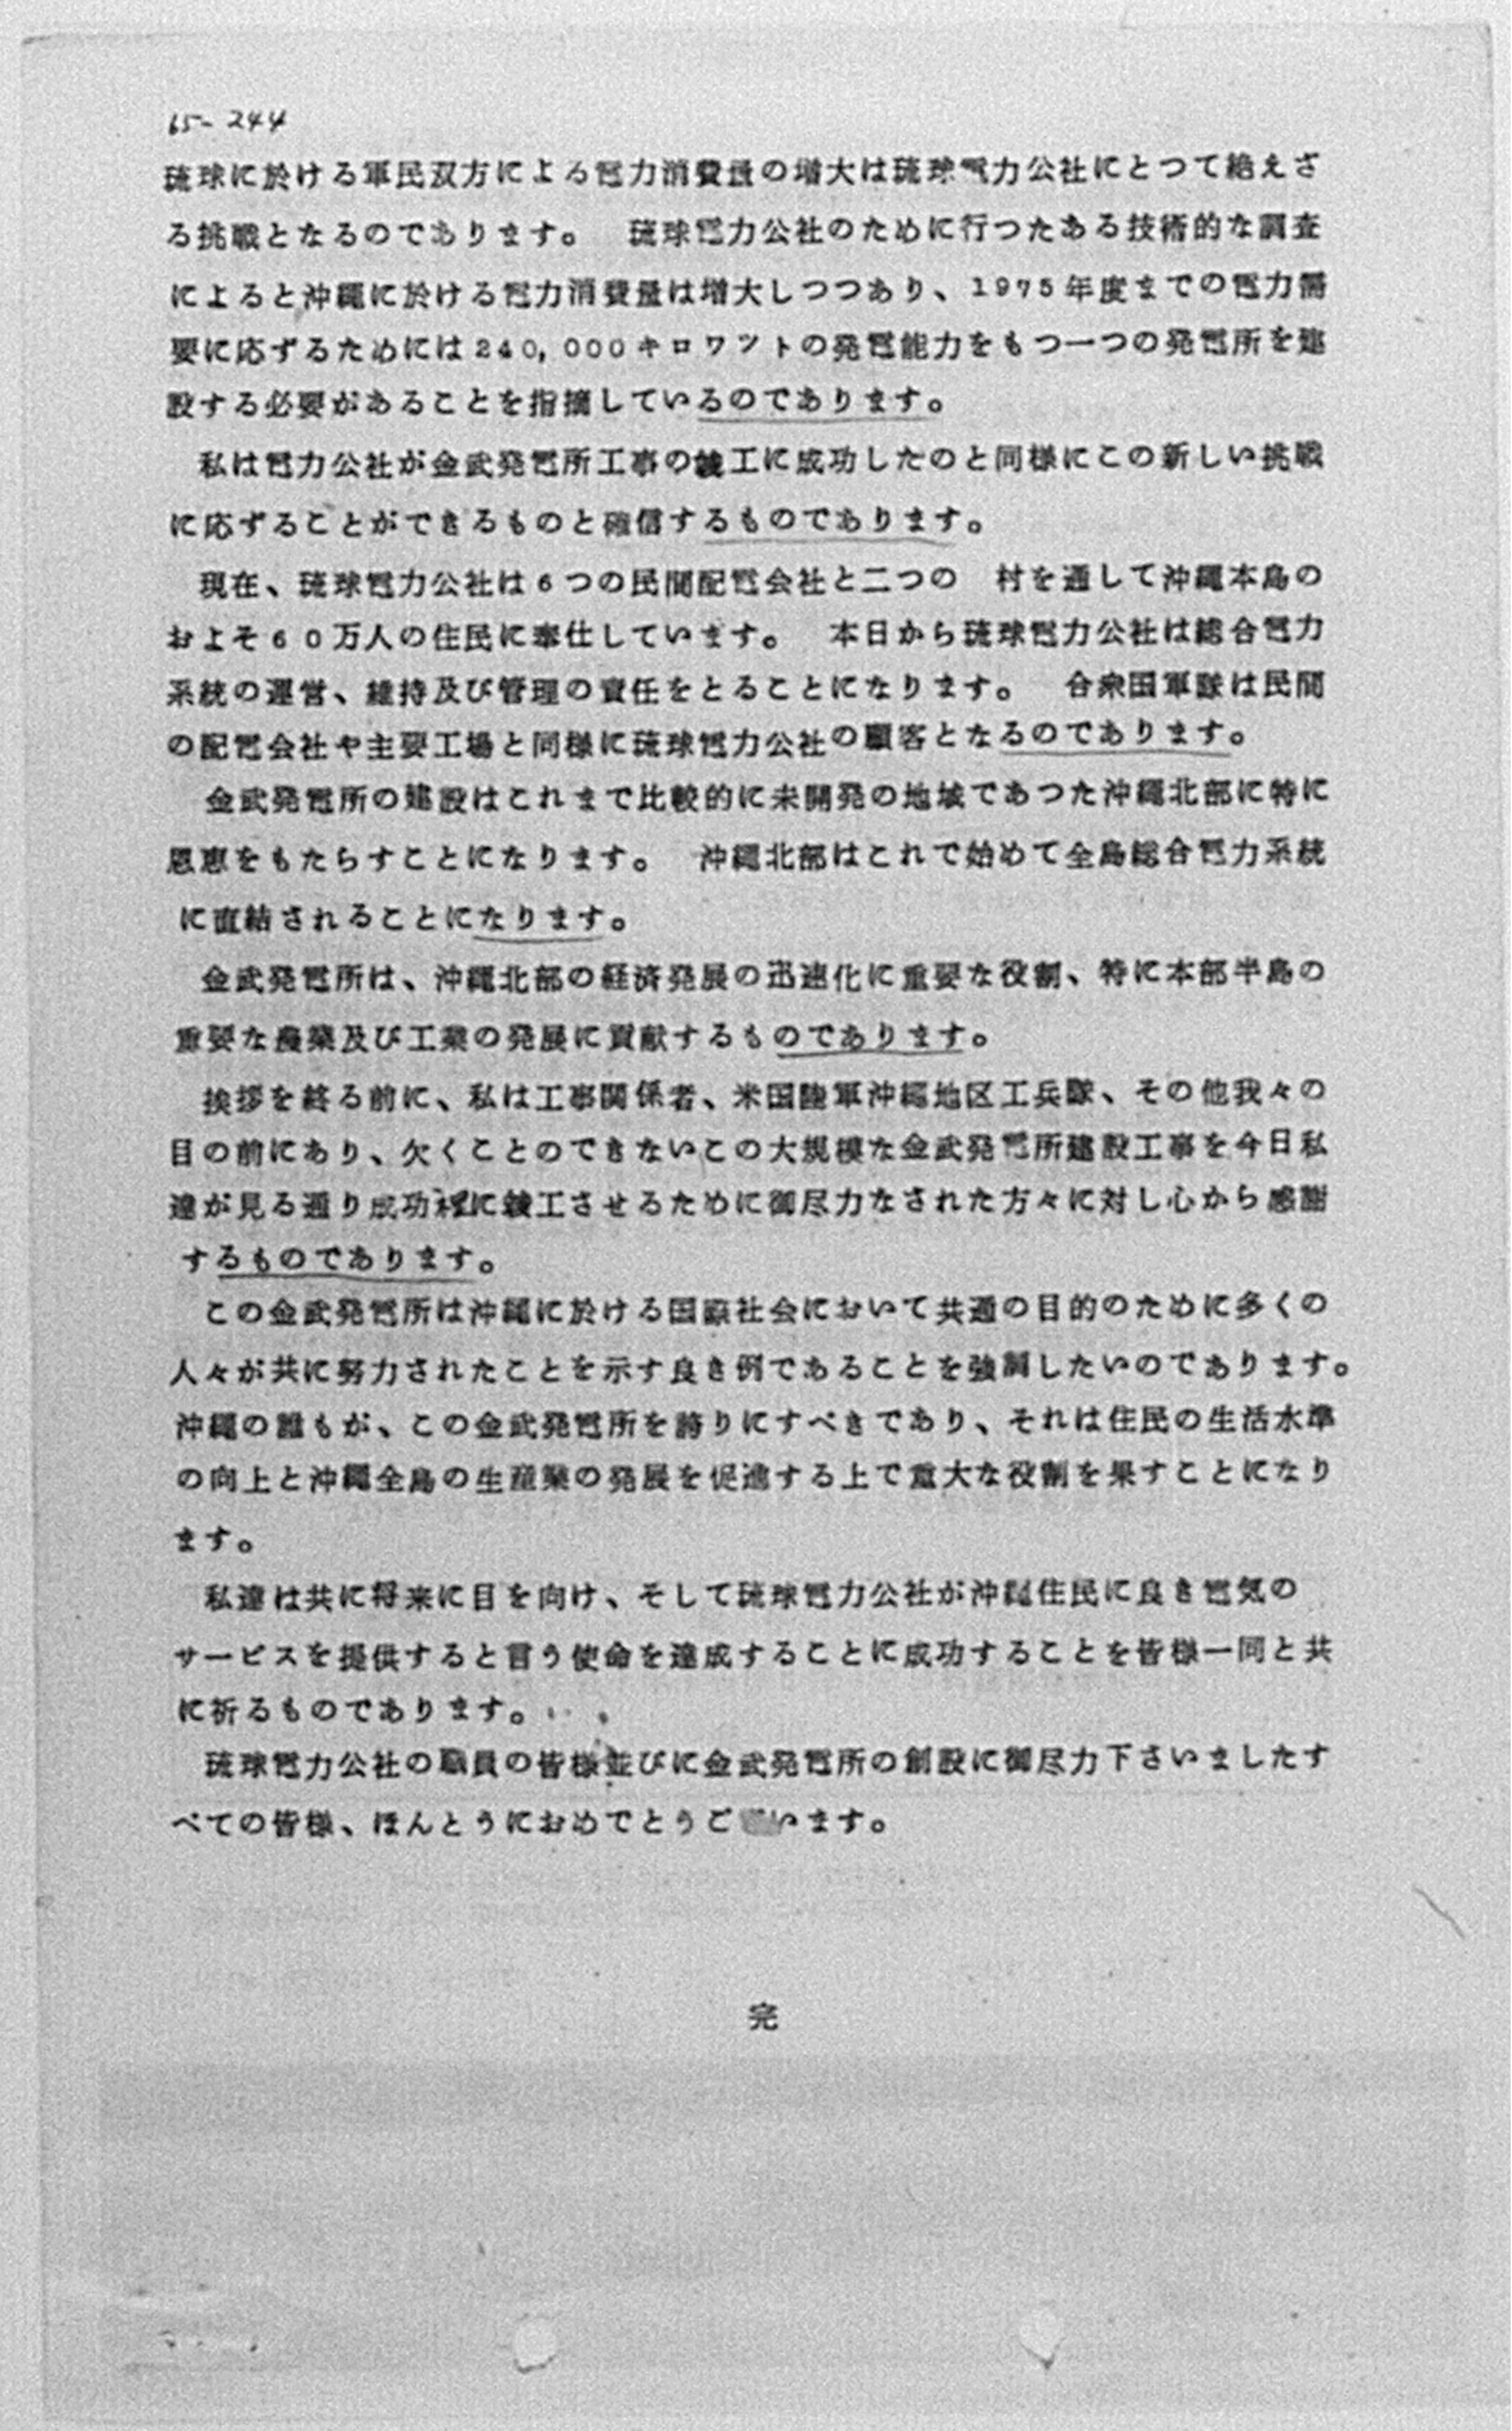 65-244
琉球に於ける軍民双方による電力消費量の増大は琉球電力公社にとつて絶えざ
る挑戦となるのであります。　琉球電力公社のために行つたある技術的な調査
によると沖縄に於ける電力消費量は増大しつつあり、1975年度までの電力需
要に応ずるためには240,000キロワツトの発電能力をもつ一つの発電所を建
設する必要があることを指摘しているのであります。
私は電力公社が金武発電所工事の竣工に成功したのと同様にこの新しい挑戦
に応ずることができるものと確信するものであります。
現在、琉球電力公社は6つの民間配電会社と二つの　村を通して沖縄本島の
およそ60万人の住民に奉仕しています。　本日から琉球電力公社は総合電力
系統の運営、維持及び管理の責任をとることになります。　合衆国軍隊は民間
の配電会社や主要工場と同様に琉球電力公社の顧客となるのであります。
金武発電所の建設はこれまで比較的に未開発の地域であつた沖縄北部に特に
恩恵をもたらすことになります。　沖縄北部はこれで始めて全島総合電力系統
に直結されることになります。
金武発電所は、沖縄北部の経済発展の迅速化に重要な役割、特に本部半島の
重要な農業及び工業の発展に貢献するものであります。
挨拶を終る前に、私は工事関係者、米国陸軍沖縄地区工兵隊、その他我々の
目の前にあり、欠くことのできないこの大規模な金武発電所建設工事を今日私
達が見る通り成功裡に竣工させるために御尽力なされた方々に対し心から感謝
するものであります。
この金武発電所は沖縄に於ける国際社会において共通の目的のために多くの
人々が共に努力されたことを示す良き例であることを強調したいのであります。
沖縄の誰もが、この金武発電所を誇りにすべきであり、それは住民の生活水準
の向上と沖縄全島の生産業の発展を促進する上で重大な役割を果すことになり
ます。
私達は共に将来に目を向け、そして琉球電力公社が沖縄住民に良き電気の
サービスを提供すると言う使命を達成することに成功することを皆様一同と共
に祈るものであります。
琉球電力公社の職員の皆様並びに金武発電所の創設に御尽力下さいましたす
べての皆様、ほんとうにおめでとうご います。
完